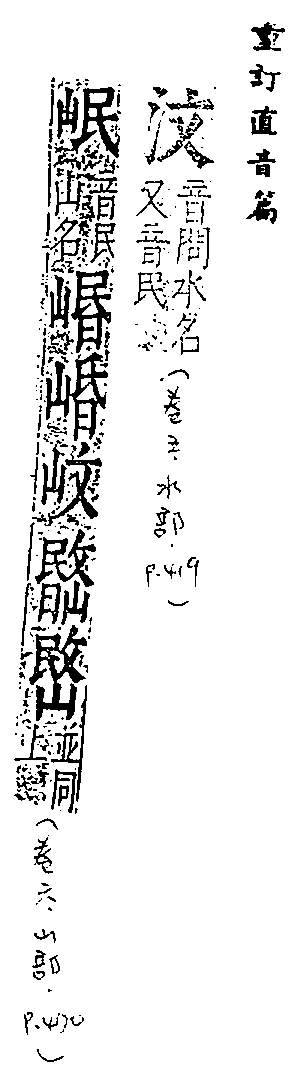 重訂直音篇
汶 音問水名又音民（卷五．水部．P.419）
岷 音民山名 崏 㟭 㟩 𢾬 敃 並同上（卷六．山部．P.430）